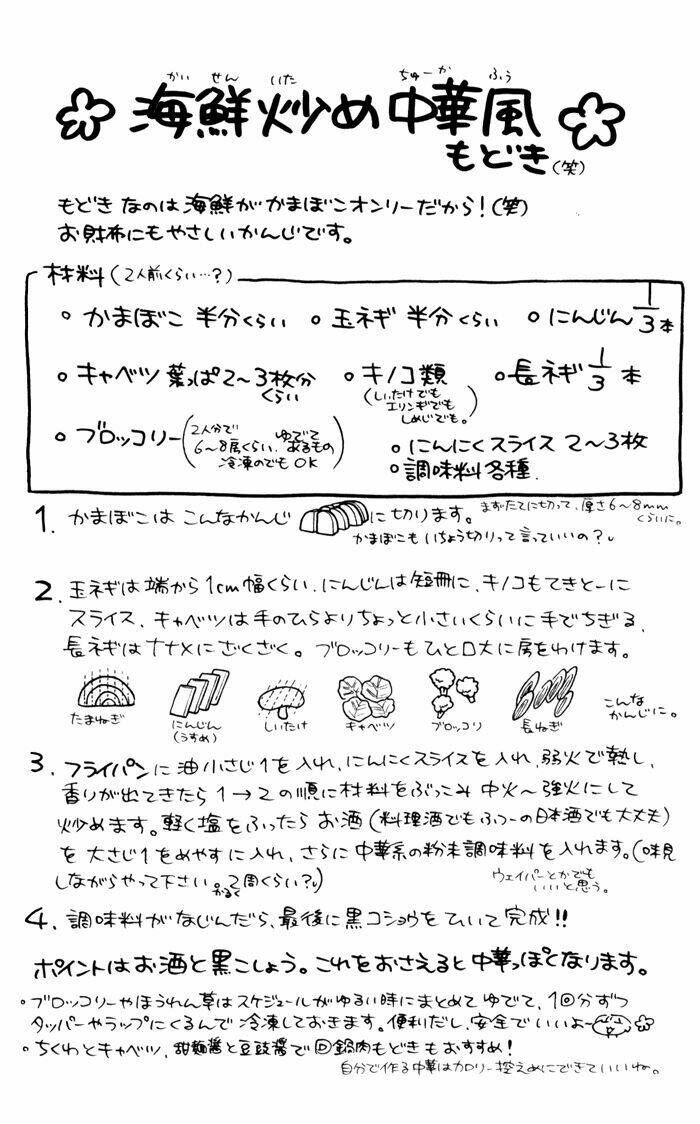 かい せん いた ちゅーか ふう
海鮮炒め中華風
もどき(笑)
もどきなのは海鮮がかまぼこオンリーだから!(笑)
お財布にもやさしいかんじです。
材料(2人前くらい…?)
かまぼこ 半分くらい 玉ネギ 半分くらい にんじん1/3本
キャベツ 葉っぱ2〜3枚分くらい キノコ類(しいたけでもエリンギでもしめじでも。) 長ネギ1/3本
ブロッコリー(2人分で6〜8房くらい、ゆでてあるもの 冷凍のでもOK)
にんにくスライス 2〜3枚
調味料各種
1. かまぼこはこんなかんじ に切ります。まずたてに切って、厚さ6〜8mmくらいに。
かまぼこもいちょう切りって言っていいの?
2. 玉ネギは端から1cm幅くらい、にんじんは短冊に、キノコもてきとーに
スライス、キャベツは手のひらよりちょっと小さいくらいに手でちぎる、
長ネギはナナメにざくざく。ブロッコリーもひと口大に房をわけます。
たまねぎ にんじん(うすめ) しいたけ キャベツ ブロッコリ 長ねぎ こんなかんじに。
3. フライパンに油小さじ1を入れ、にんにくスライスを入れ、弱火で熱し、
香りが出てきたら1→2の順に材料をぶっこみ中火〜強火にして
炒めます。軽く塩をふったらお酒(料理酒でもふつーの日本酒でも大丈夫)
を大さじ1をめやすに入れ、さらに中華系の粉末調味料を入れます。(味見
しながらやって下さい。かるく2周くらい?)
ウェイパーとかでもいいと思う。
4. 調味料がなじんだら、最後に黒コショウをひいて完成!!
ポイントはお酒と黒こしょう。これをおさえると中華っぽくなります。
ブロッコリーやほうれん草はスケジュールがゆるい時にまとめてゆでて、1回分ずつ
タッパーやラップにくるんで冷凍しておきます。便利だし、安全でいいよー
ちくわとキャベツ、甜麺醤と豆豉醤で回鍋肉もどきもおすすめ!
自分で作る中華はカロリー控えめにできていいね。